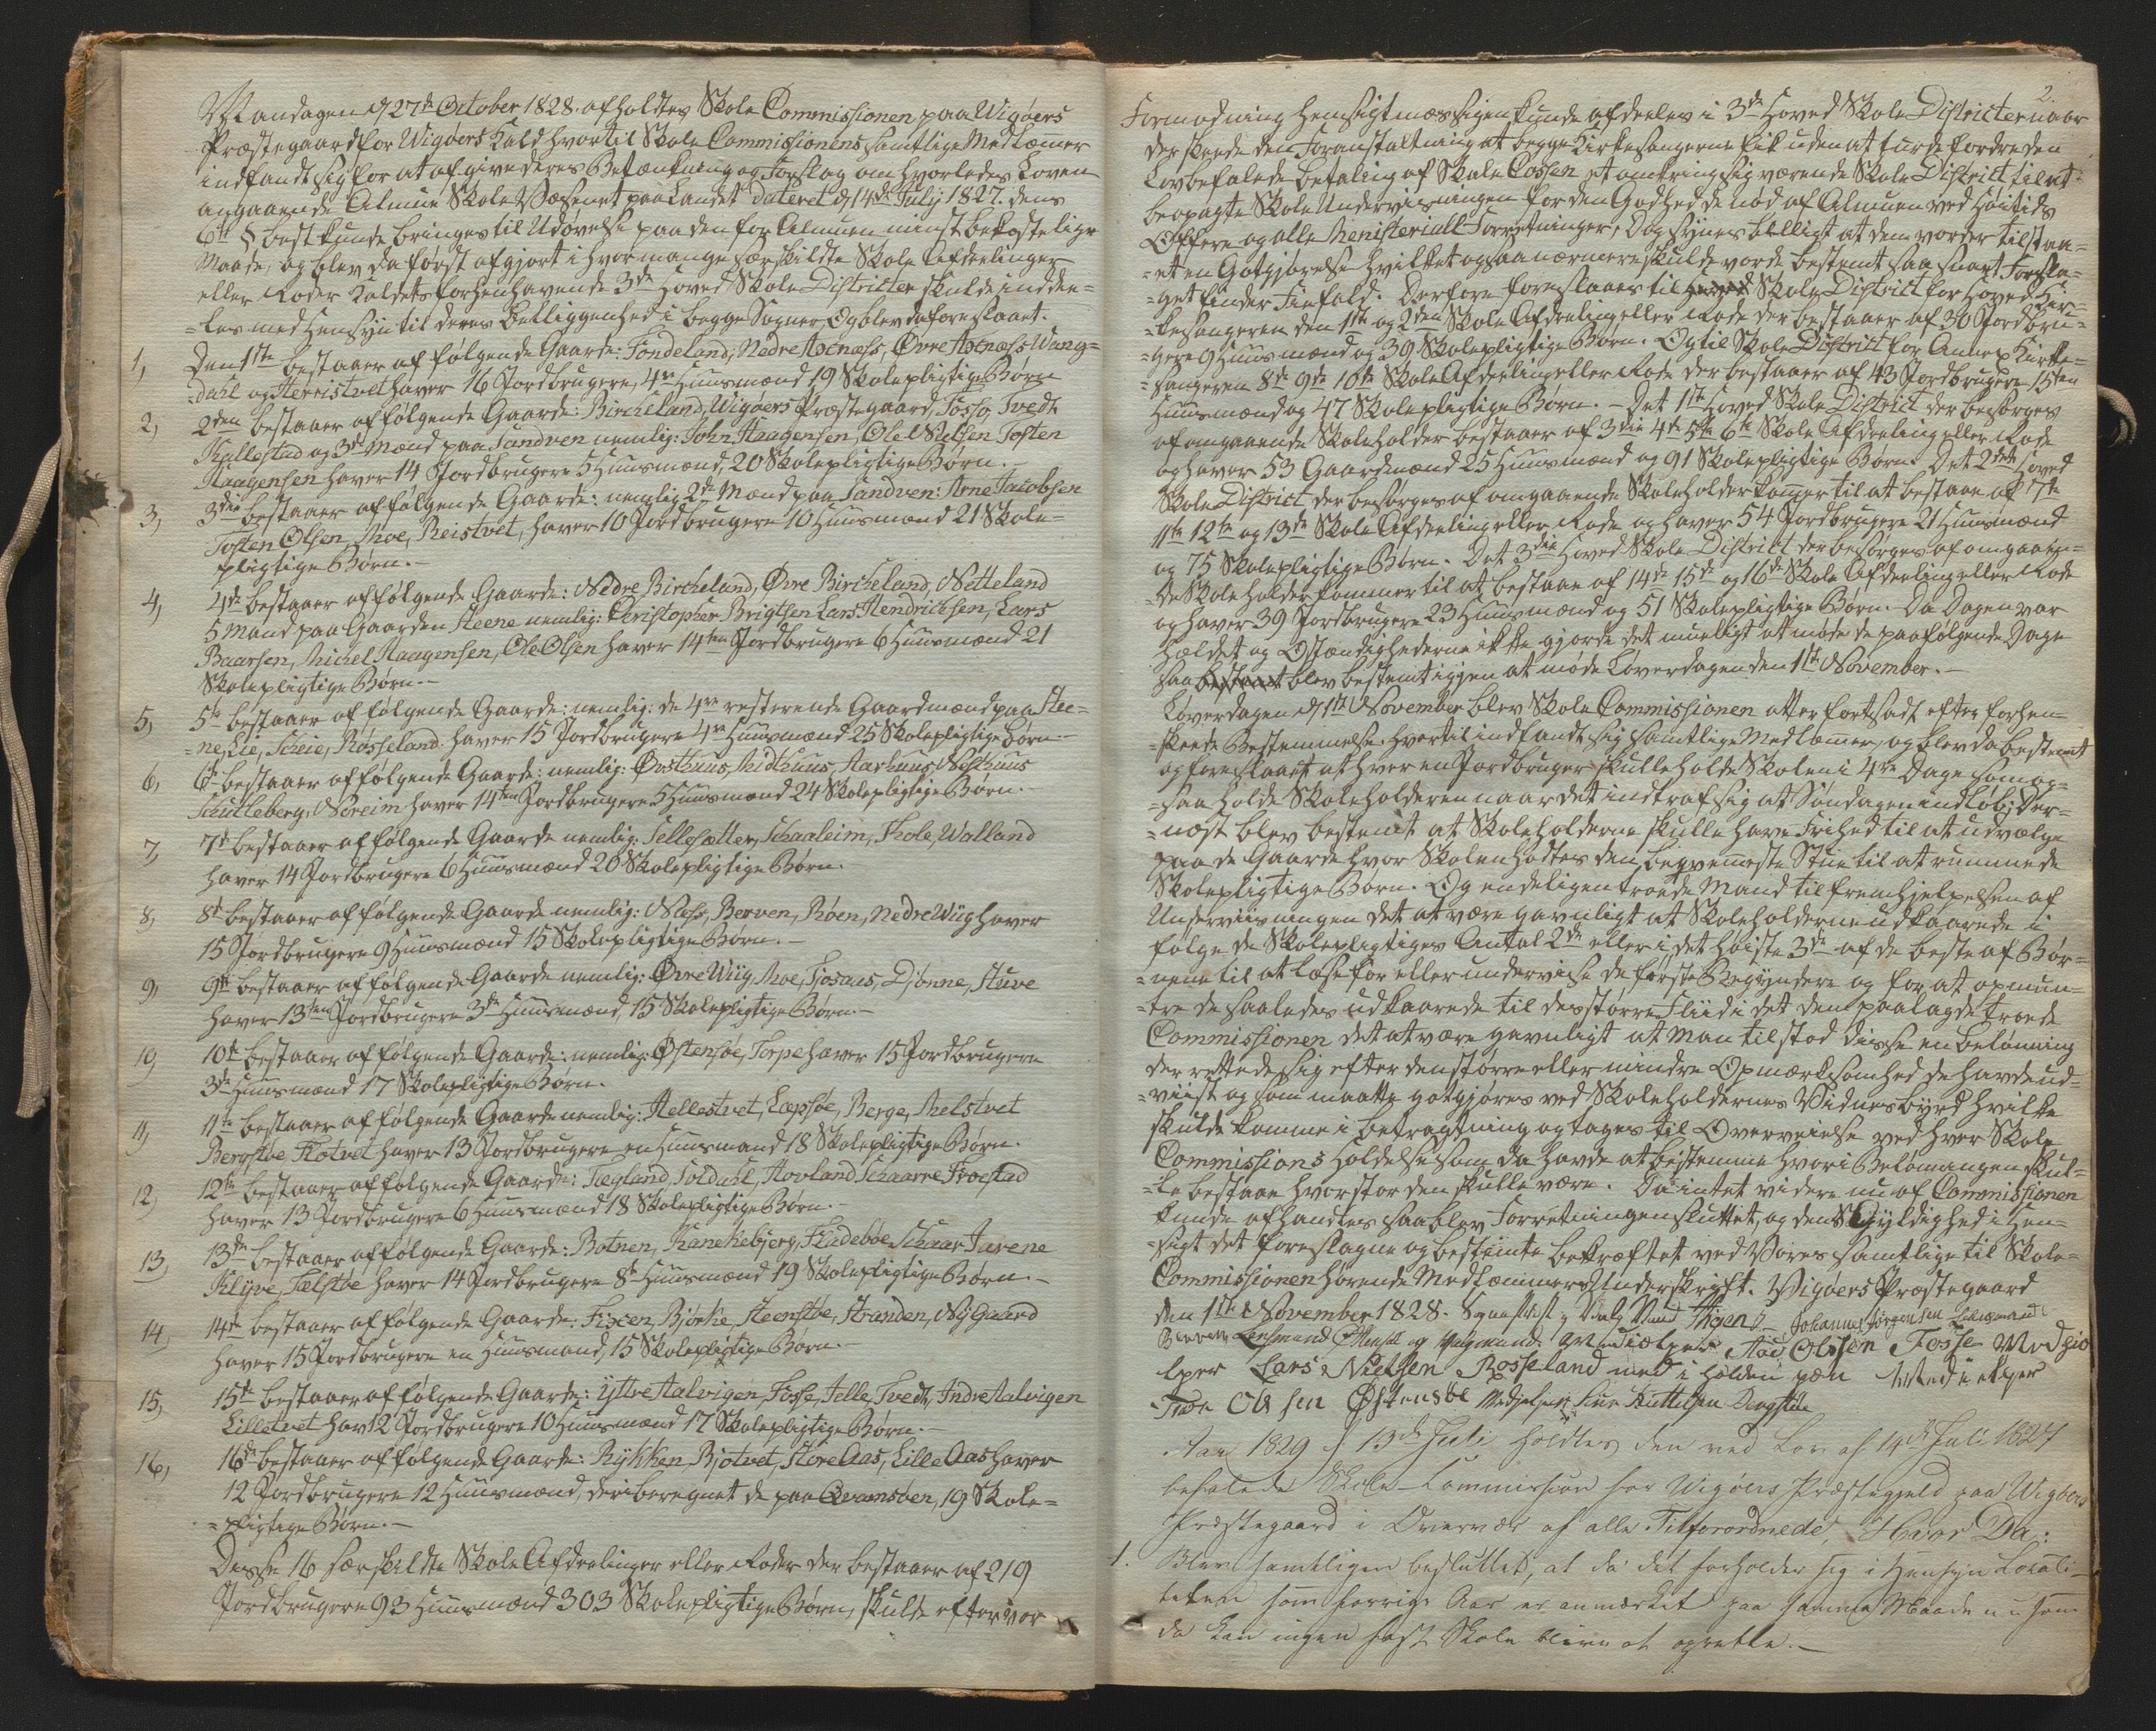 Mandagen d 27de October 1828. afholdtes Skole Commissionen paa Wigøers
Præstegaard for Wigøers Kald hvortil Skole Commissionens samtlige Medlæmer
indfandt sig for at afgive deres Betænkning og Forslag om hvorledes Loven
angaaende Almue Skole Væsenet paa Landet dateret d 14de July 1827. dens
6te § best kunde bringes til Udøvelse paa den for Almuen minst bekostelige
Maade, og blev da først afgjort i hvormange særskildte Skole Afdeelinger
eller Roder Kaldets forhenhavende 3de Hoved Skole Districter skulde inddee-
=les med Hensyn til deres Belliggenhed i begge Sogner, Og blev da foreslaaet.
1, Den 1ste bestaaer af følgende Gaarde: Tondeland, Nedre Axnæss, Øvre Axnæss Wang-
=dahl og Herristvet haver 16 Jordbrugere, 4re Huusmænd 19 Skolepligtige Børn
2, 2den bestaaer af følgende Gaarde: Bircheland, Wigøers Præstegaard, Tosso, Tvedt
Kallestad og 3de Mænd paa Sandven nemlig: John Haagensen, Ole Nilsen Tosten
Haagensen haver 14 Jordbrugere 5 Huusmænd, 20 Skolepligtige Børn.
3, 3die bestaaer af følgende Gaarde: nemlig 2de Mænd paa Sandven: Arne Jacobsen
Tosten Olsen, Moe, Reistvet, haver 10 Jordbrugere 10 Huusmænd 21 Skole-
pligtige Børn.-
4, 4de bestaaer af følgende Gaarde: Nedre Bircheland, Øvre Bircheland, Netteland
5 Mand paa Gaarden Steene nemlig: Christopher Brigtsen Lars Hendrichsen, Lars
Baarsen, Michel Haagensen, Ole Olsen haver 14ten Jordbrugere 6 Huusmænd 21
Skolepligtige Børn.-
5, 5te bestaaer af følgende Gaarde: nemlig: de 4re resterende Gaardmænd paa Stee-
=ne, Lie, Scheie, Røsseland. haver 15 Jordbrugere 4re Huusmænd 25 Skolepligtige Børn.-
6, 6te bestaaer af følgende Gaarde: nemlig: Øvsthuus, Midthuus, Aarhuus, Nefthuus
Schulleberg, Noreim haver 14ten Jordbrugere 5 Huusmænd 24 Skolepligtige Børn.-
7, 7de bestaaer af følgende Gaarde nemlig: Sellesætter, Schaaleim, Thole, Walland
haver 14 Jordbrugere 6 Huusmænd 20 Skolepligtige Børn.
8, 8de bestaaer af følgende Gaarde nemlig: Ness, Berven, Røen, Nedre Wiig haver
15 Jordbrugere 9 Huusmænd 15 Skolepligtige Børn.-
9, 9de bestaaer af følgende Gaarde nemlig: Øvre Wiig, Moe, Fjosaas, Djønne, Stuve
haver 13ten Jordbrugere 3de Huusmænd, 15 Skolepligtige Børn.-
10, 10de bestaaer af følgende Gaarde: nemlig: Østensøe, Torpe haver 15 Jordbrugere
3de Huusmænd 17 Skolepligtige Børn.
11, 11te bestaaer af følgende Gaarde nemlig: Hellestvet, Læpsøe, Berge, Melstvet
Bergstøe Flotvet haver 13 Jordbrugere en Huusmand 18 Skolepligtige Børn.
12, 12te bestaaer af følgende Gaarde: Tægland, Soldahl, Hovland Schaarre Froestad
haver 13 Jordbrugere 6 Huusmænd 18 Skolepligtige Børn.-
13, 13de bestaaer af følgende Gaarde: Botnen, Kanekebjerg, Fladebøe Schaar Tarene
Klyve, Telstøe haver 14 Jordbrugere 8te Huusmænd 19 Skolepligtige Børn.-
14, 14de bestaaer af følgende Gaarde: Fixen, Bjørke, Steenstøe, Stranden, NyGaard
haver 15 Jordbrugere en Huusmand, 15 Skolepligtige Børn.-
15, 15de bestaaer af følgende Gaarde: Yttre Aalvigen, Fosse, Jelle, Tvedt, Indre Aalvigen
Lilletvet hav 12 Jordbrugere 10 Huusmænd 17 Skolepligtige Børn.-
16, 16de bestaaer af følgende Gaarde: Rykken, Bjotvet, Store Aas, Lille Aas haver
12 Jordbrugere 12 Huusmænd, deri beregnet de paa Qvamsøen, 19 Skole-
=pligtige Børn.-
Disse 16 særskildte Skole Afdeelinger eller Roder der bestaaer af 219
Jordbrugere 93 Huusmænd 303 Skolepligtige Børn, skulde efter vor
2.
Formodning hensigtmæssigen kunde afdeeles i 3de Hoved Skole Districter naar
der skeede den Foranstaltning at begge Kirkesangerne fik uden at turde fordre den
Lovbefalede betaling af Skole Cassen et omkring sig værende Skole District til at
beopagte Skole Undervisningen for den Godhed de nød af Almuen ved Høitids
Offere og alle Menisterialle Forretninger, Dog synes belligt at dem vorder tilstaa-
=et en Gotgjørelse hvilket ogsaa nærmere skulde vorde bestemt saa snart Forsla-
=get finder Fiefald. Derfore foreslaaes til Skole District for Hoved Kir-
=kesangeren den 1ste og 2den Skole Afdeeling eller Rode der bestaaer af 30 Jordbru-
=gere 9 Huusmænd og 39 Skolepligtige Børn. Og til Skole District for Annex Kirke-
=sangeren 8de 9de 10de Skole Afdeeling eller Rode der bestaaer af 43 Jordbrugere 15ten
Huusmænd og 47 Skolepligtige Børn. - Det 1ste Hoved Skole District der besørges
af omgaaende Skoleholder bestaaer af 3die 4de 5te 6te Skole Afdeeling eller Rode
og haver 53 Gaardmænd 25 Huusmænd og 91 Skolepligtige Børn. Det 2det Hoved
Skole District der besørges af omgaaende Skoleholder komer til at bestaae af 7de
11te 12te og 13de Skole Afdeeling eller Rode og haver 54 Jordbrugere 21 Huusmænd
og 75 Skolepligtige Børn. Det 3die Hoved Skole District der besørges af omgaaen-
de Skoleholder kommer til at bestaae af 14de 15de og 16de Skole Afdeeling eller Rode
og haver 39 Jordbrugere 23 Huusmænd og 51 Skolepligtige Børn. Da Dagen var
hældet og Ostændighederne ikke gjorde det mueligt at møde de paafølgende Dage
saa bestemt blev bestemt igjen at møde Løverdagen den 1ste November.-
Løverdagen d 1ste November blev Skole Commissionen atter fortsadt efter forhen-
=skeede Bestemmelse. Hvortil indfandt sig samtlige Medlæmer, og blev da bestemt
og foreslaaet at hver en Jordbruger skulle holde Skolen i 4re Dage som og-
=saa holde Skoleholderen naar det indtraf sig at Søndagen indløb; Der-
=næst blev bestemt at Skoleholderne skulle have Frihed til at udvælge
paa de Gaarde hvor Skolen holdtes den beqvemeste Stue til at rumme de
Skolepligtige Børn. Og endeligen troede Mand til fremhjelpelsen af
Underviisningen det at være gavnligt at Skoleholderne udkaarede i
følge de Skolepligtiges Antal 2de eller i det høiste 3de af de beste af Bør-
=nene til at læse for eller undervise de første Begyndere og for at opmun-
=tre de saaledes udkaarede til des større Fliid i det dem paalagde troede
Commissionen det at være gavnligt at Man tilstod disse en belønning
der rettede sig efter den større eller mindre Opmærksomhed de havde ud-
=viist og som maatte gotgjøres ved Skoleholdernes Vidnesbyrd hvilke
skulde komme i betragtning og tages til Overveielse ved hver Skole
Commissions Holdelse som da havde at bestemme hvori Belønningen skul-
=le bestaae hvor stor den skulle være. Da intet videre nu af Commissionen
kunde afhandles saa blev Forretningen sluttet, og dens Gyldighed i Hen-
=sigt det foreslagne og bestemte bekræftet ved Vores samtlige til Skole-
Commissionen hørende Medlæmmers Underskrift. Vigøers Præstegaard
den 1ste November 1828. Johannes Jørgensen Lehnsmand
Aad Olsen Fosse Medhiæ
lper Lars Nielsen Rosseland med i hølden gæn Med i elper
Olsen Østensøe
Aar 1829 d. 13de Juli holdtes den ved Lov af 14de Juli 1827
befalede Skole-Commission for Wigøers Præstegjeld paa Wigøers
Præstegaard i Overvær af alle Tilforordnede, Hvor Da:
1. Blev samtligen besluttet, at da det forholder sig i Hensyn Locali-
teten som forrige Aar er anmærket paa samme Maade nu som
da kan ingen fast Skole blive at oprette.-